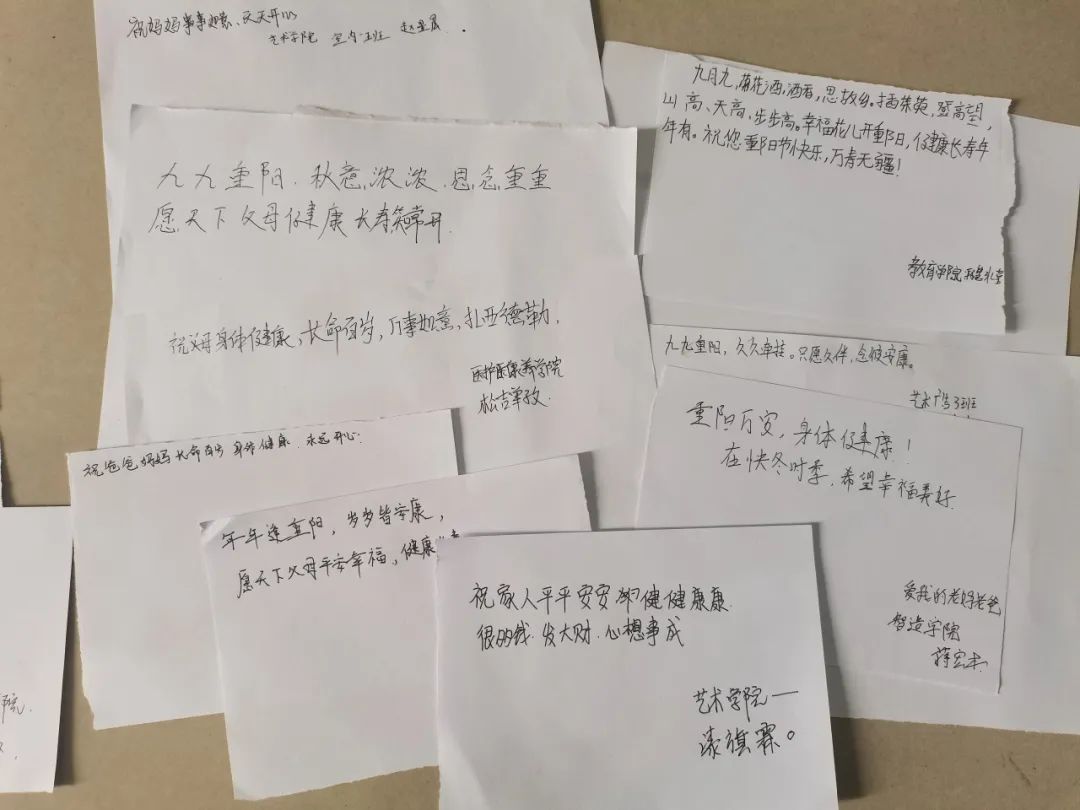 祝妈妈事事如意、天天开心
艺术学院 室内一班
九九重阳、秋意浓浓、思念重重
愿天下父母健康长寿笑常开.
祝父母身体健康,长命百岁,万事如意,扎西德勒.
医护康养学院
松吉单孜.
九月九,菊花酒,酒香,思故乡。插茱萸,登高望,
山高、天高、步步高。幸福花儿开重阳,健康长寿年
年有。祝您重阳节快乐,万寿无疆!
教育学院
九九重阳,久久牵挂。只愿久伴,念彼安康。
艺术广告3班
重阳万安,身体健康!
在快冬时季,希望幸福美好.
爱我的老妈老爸
智造学院
蒋宏杰.
祝爸爸妈妈长命百岁 身体健康.永远开心.
年年逢重阳,岁岁皆安康,
愿天下父母平安幸福,健康
祝家人平平安安 健健康康.
很多钱.发大财.心想事成
艺术学院一
院.